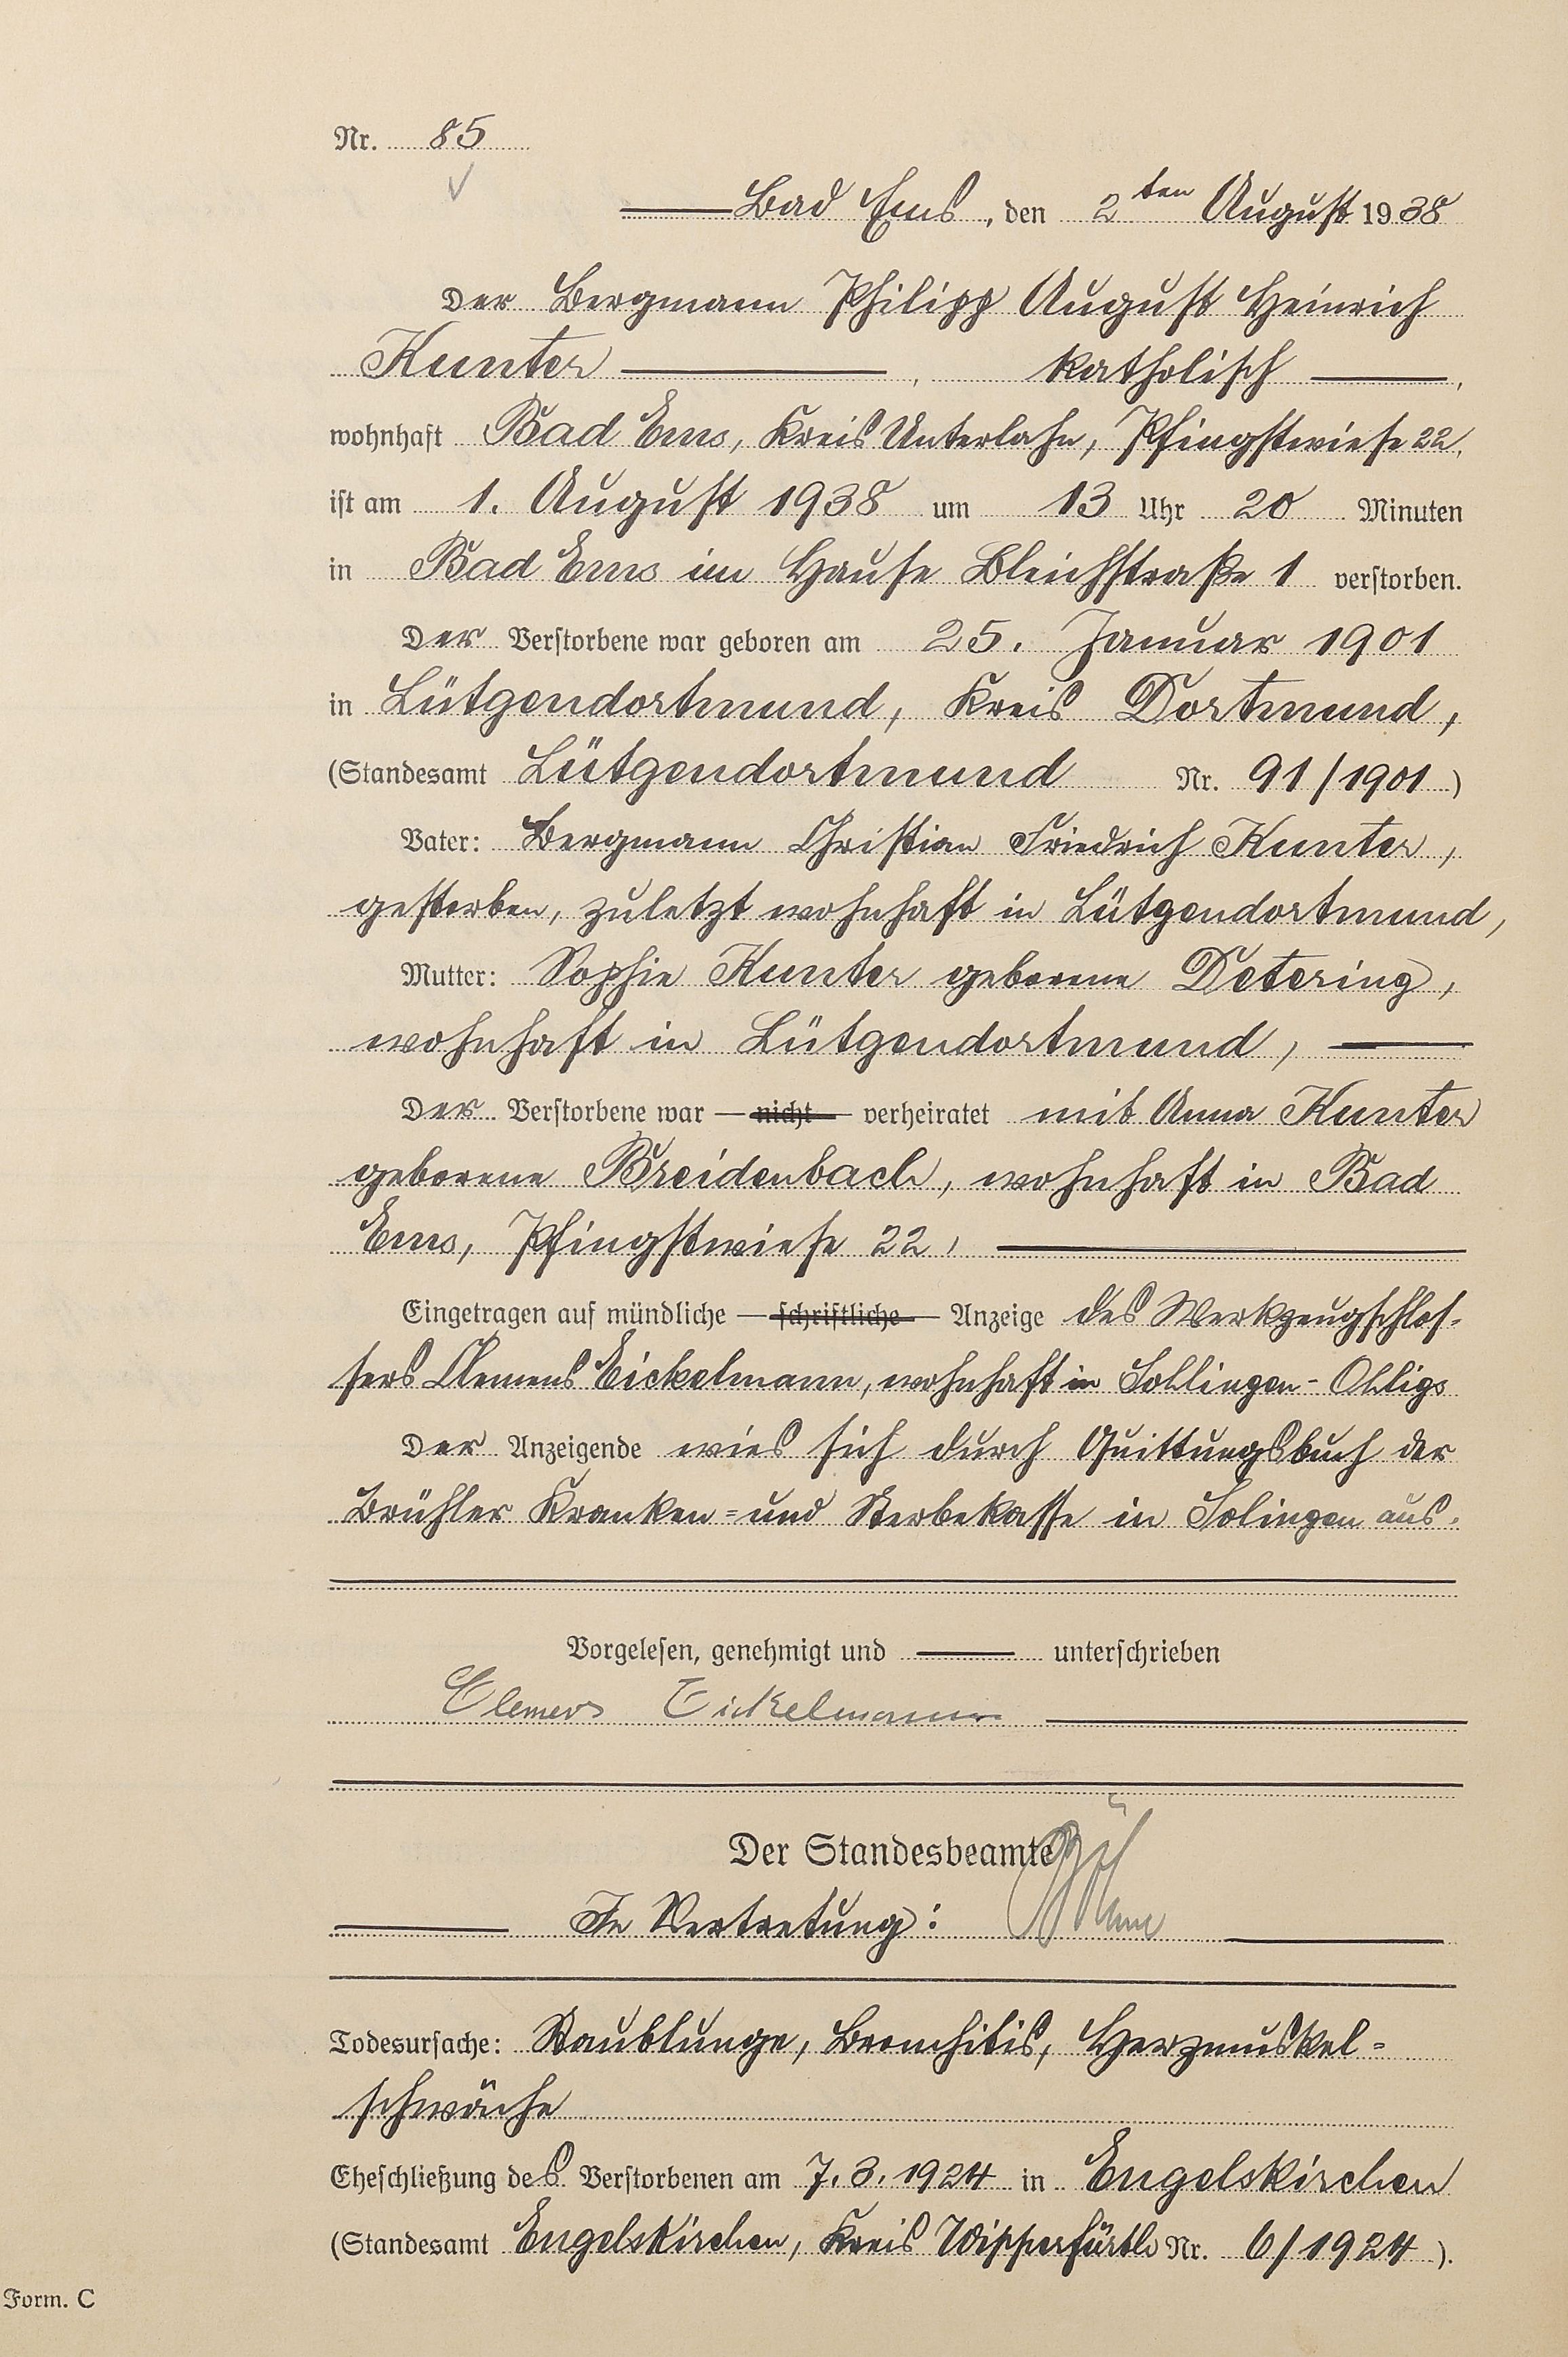 Nr. 85
Bad Ems, den 2ten August 1938
Der Bergmann Philipp August Heinrich
Kunter, katholisch,
wohnhaft Bad Ems, Kreis Unterlahn, Pfingstwiese 22,
ist am 1. August 1938 um 13 Uhr 20 Minuten
in Bad Ems im Hause Bleichstraße 1 verstorben.
Der Verstorbene war geboren am 25. Januar 1901
in Lütgendortmund, Kreis Dortmund,
(Standesamt Lütgendortmund Nr. 91/1901)
Vater: Bergmann Christian Friedrich Kunter,
gestorben, zuletzt wohnhaft in Lütgendortmund,
Mutter: Sophie Kunter geborene Detering,
wohnhaft in Lütgendortmund,
Der Verstorbene war — nicht — verheiratet mit Anna Kunter
geborene Breidenbach, wohnhaft in Bad
Ems, Pfingstwiese 22,
Eingetragen auf mündliche — schriftliche — Anzeige des Werkzeugschlos-
sers Clemens Eickelmann, wohnhaft in Sollingen-Ohligs
Der Anzeigende wies sich durch Quittungsbuch der
Brühler Kranken= und Sterbekasse in Solingen aus.
Vorgelesen, genehmigt und unterschrieben
Clemens Eickelmann
Der Standesbeamte
In Vertretung:
Todesursache: Staublunge, Bronchitis, Herzmuskel=
schwäche
Eheschließung des Verstorbenen am 7.3.1924 in Engelskirchen
(Standesamt Engelskirchen, Kreis Wipperfürth Nr. 6/1924).
Form. C